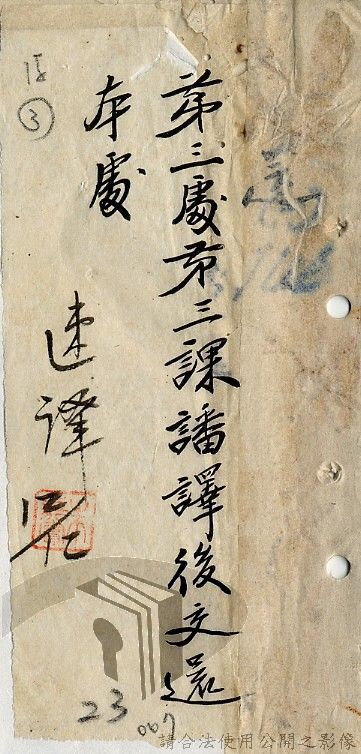 第三處第三課譒譯後交還
本處
速譯
15
③
23
007
請合法使用公開之影像